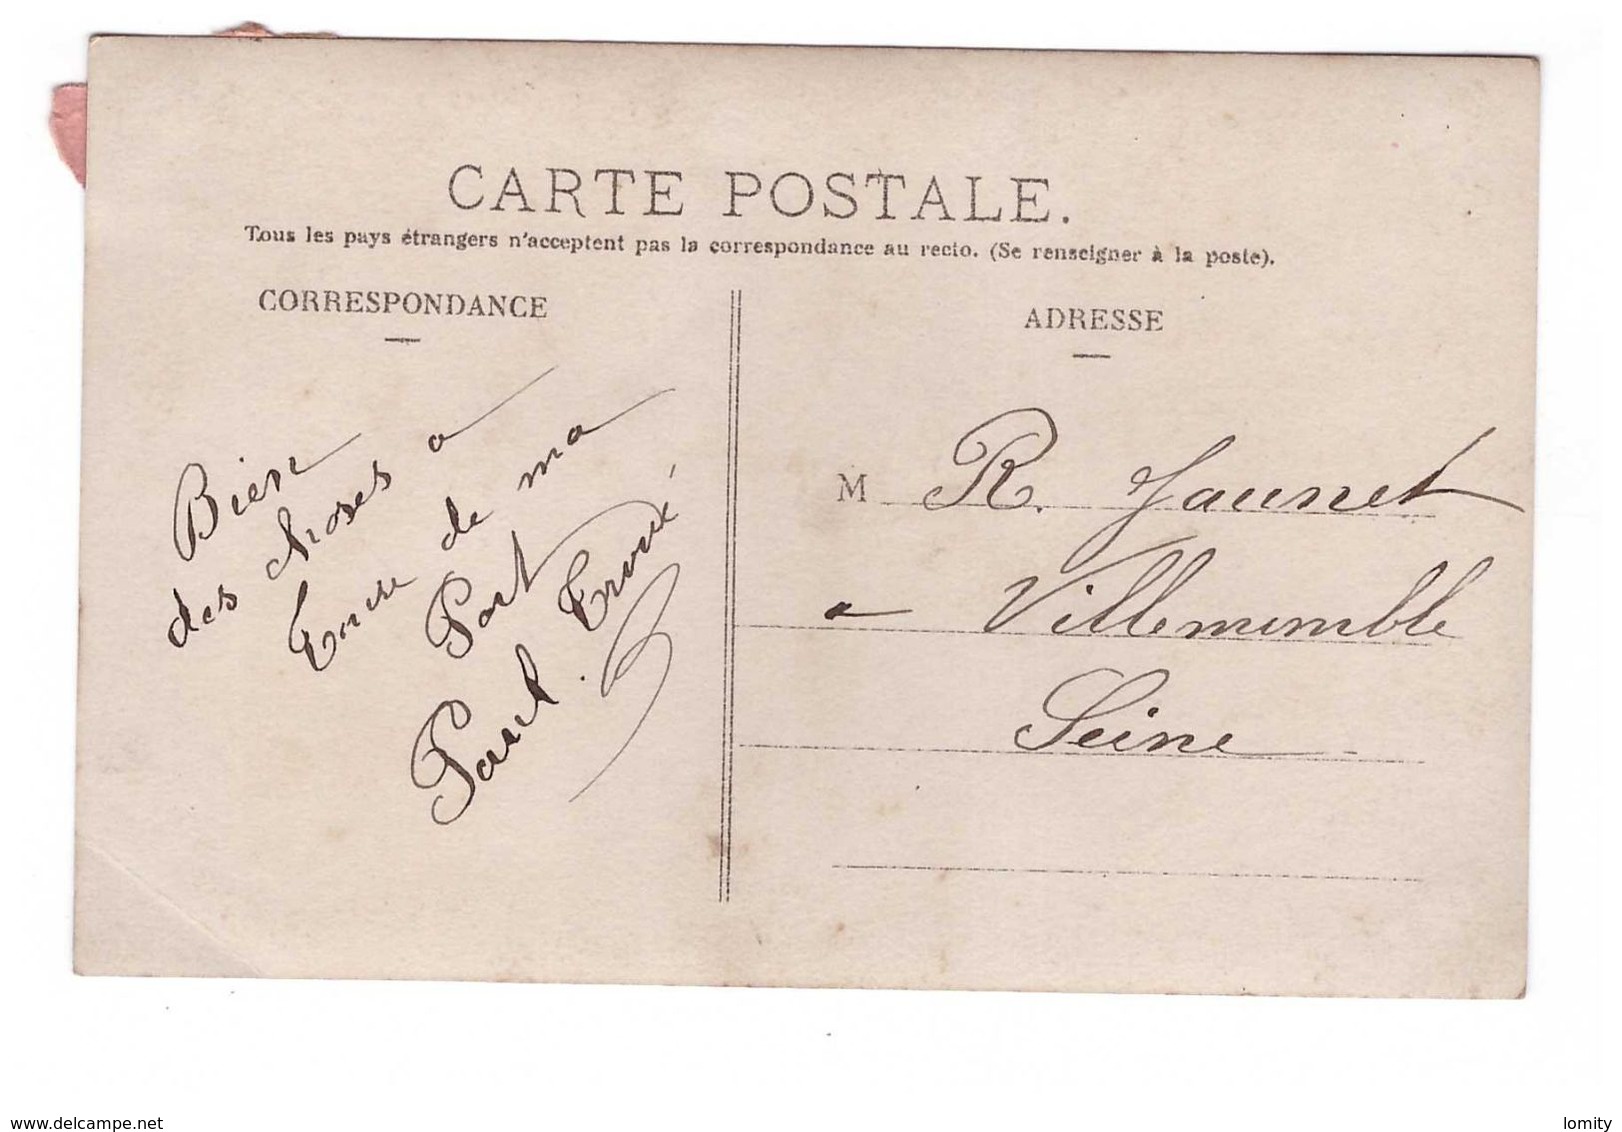 CARTE POSTALE.
Tous les pays étrangers n'acceptent pas la correspondance au recto. (Se renseigner à la poste).
CORRESPONDANCE
Bien
des choses a
de ma
Part
Paul.
ADRESSE
M R. Jaunet
a Villemomble
Seine
delcampe.net
lomity